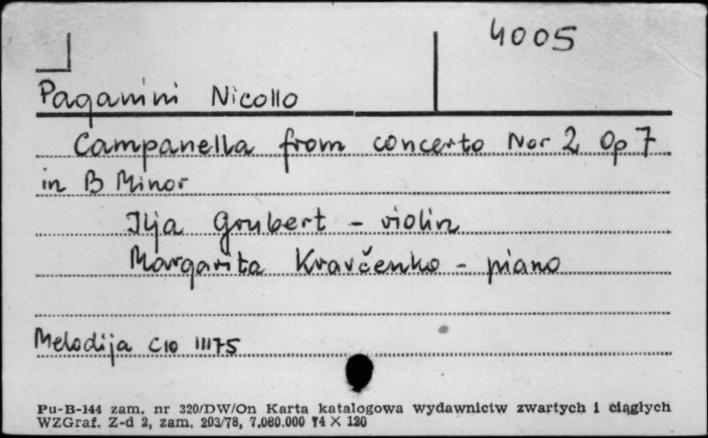 4005
Paganini Nicollo
Campanella from concerto Nor 2 Op 7
in B Minor
Ilja Grubert - violin
Margarita Kravčenko - piano
Melodija C10 11175
Pu-B-144 zam. nr 320/DW/On Karta katalogowa wydawnictw zwartych i ciągłych
WZGraf. Z-d 2, zam. 203/78, 7.080.000 74 × 120